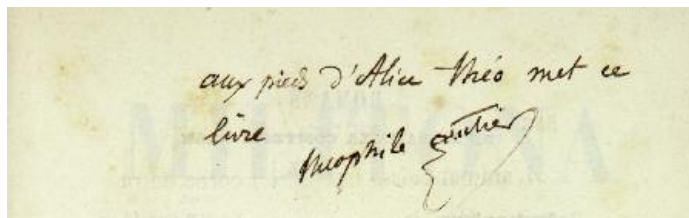 aux pieds d'Alice Théo met ce
livre
Théophile Gautier